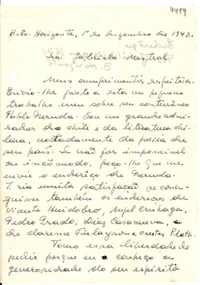 4419
Belo Horizonte, 1º de dezembro de 1943.
Sra. Gabriela Mistral
Meus cumprimentos respeitosos.
Envio-lhe junto a esta um pequeno
trabalho meu sobre seu conterrâneo
Pablo Neruda. Sou um grande admi-
rador do Chile e da literatura chi-
lena, notadamente da poesia de
seu país. Se não for impossível
ou incômodo, peço-lhe que me
envie o endereço de Neruda.
Teria muita satisfação se conse-
guisse também os endereços de
Vicente Huidobro, Angel Cruchaga,
Pedro Prado, Díaz Casanueva, o
de Clarence Finlayson e outros,
Tomo essa liberdade de
pedir porque eu conheço a
generosidade do seu espírito